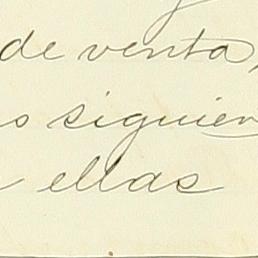 de venta,
s siguien
ellas